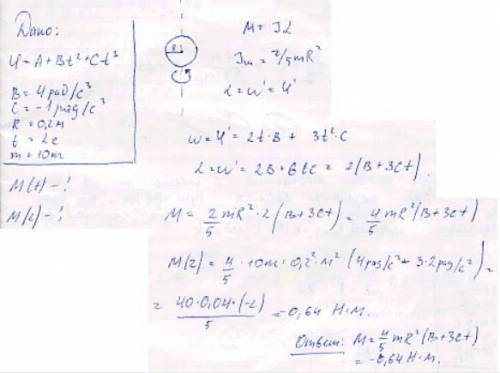 Дано:
φ = A + Bt² + Ct³
B = 4 рад/с³
C = -1 рад/с³
R = 0,2м
t = 2с
m = 10кг
M(t) - ?
M(2) - ?
R
M = Iε
Iш = 2/5 mR²
ε = ω' = φ''
ω = φ' = 2t·B + 3t²·C
ε = ω' = 2B + 6tC = 2(B+3Ct)
M = 2/5 mR²·2(B+3Ct) = 4/5 mR²(B+3Ct)
M(2) = 4/5 · 10кг · 0,2²·м² (4рад/с² - 3·2рад/с²) =
= 40·0,04·(-2)/5 = -0,64 Н·м.
Ответ: M = 4/5 mR²(B+3Ct)
= -0,64 Н·м.